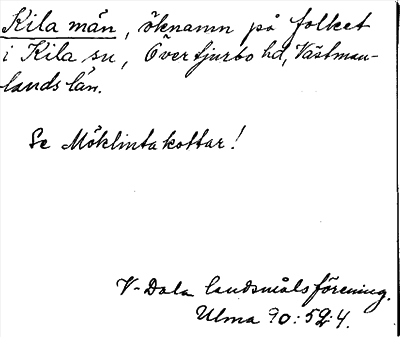 Kila män, öknamn på folket
i Kila sn, Övertjurbo hd, Västman-
lands län.
Se Möklintakottar!
V-Dala landsmålsförening.
Ulma 90:52:4.